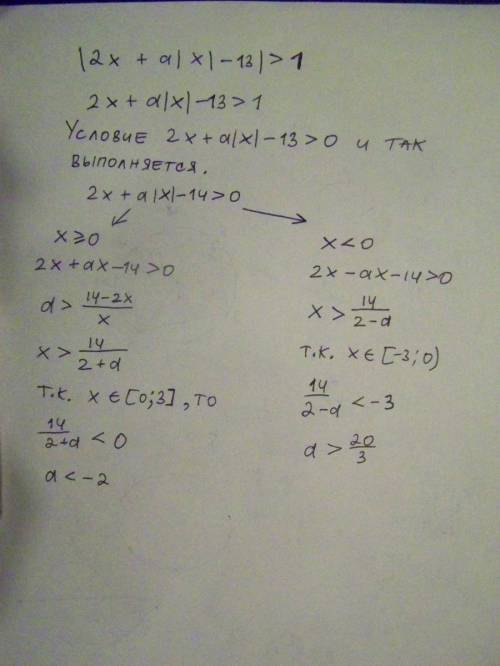 |2x + a|x|-13|>1
2x+a|x|-13>1
Условие 2x+a|x|-13>0 и так
выполняется.
2x+a|x|-14>0
x≥0
2x+ax-14>0
a> 14-2x/x
x> 14/2+a
т.к. x∈[0;3], то
14/2+a <0
a<-2
x<0
2x-ax-14>0
x> 14/2-a
т.к. x∈[-3;0)
14/2-a <-3
a> 20/3